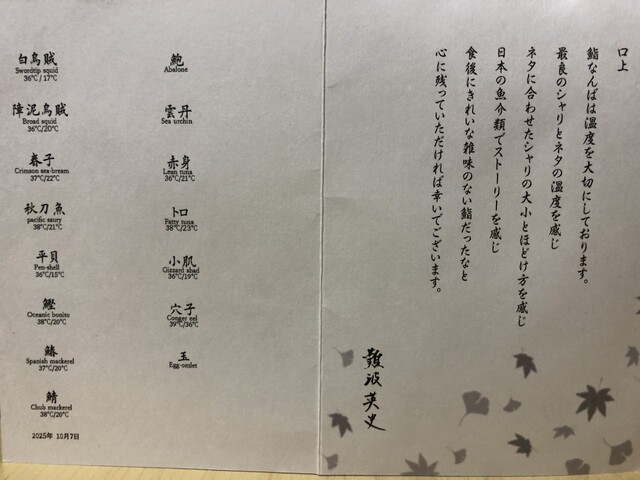 白烏賊
Swordtip squid
36℃/17℃
障泥烏賊
Broad squid
36℃/20℃
春子
Crimson sea-bream
37℃/22℃
秋刀魚
pacific saury
38℃/21℃
平貝
Pen-shell
36℃/15℃
鰹
Oceanic bonito
38℃/20℃
鰆
Spanish mackerel
37℃/20℃
鯖
Chub mackerel
38℃/20℃
2025年 10月7日
鮑
Abalone
雲丹
Sea urchin
赤身
Lean tuna
36℃/21℃
トロ
Fatty tuna
38℃/23℃
小肌
Gizzard shad
36℃/19℃
穴子
Conger eel
39℃/36℃
玉
Egg-omlet
口上
鮨なんばは温度を大切にしております。
最良のシャリとネタの温度を感じ
ネタに合わせたシャリの大小とほどけ方を感じ
日本の魚介類でストーリーを感じ
食後にきれいな雑味のない鮨だったなと
心に残っていただければ幸いでございます。
難波英史